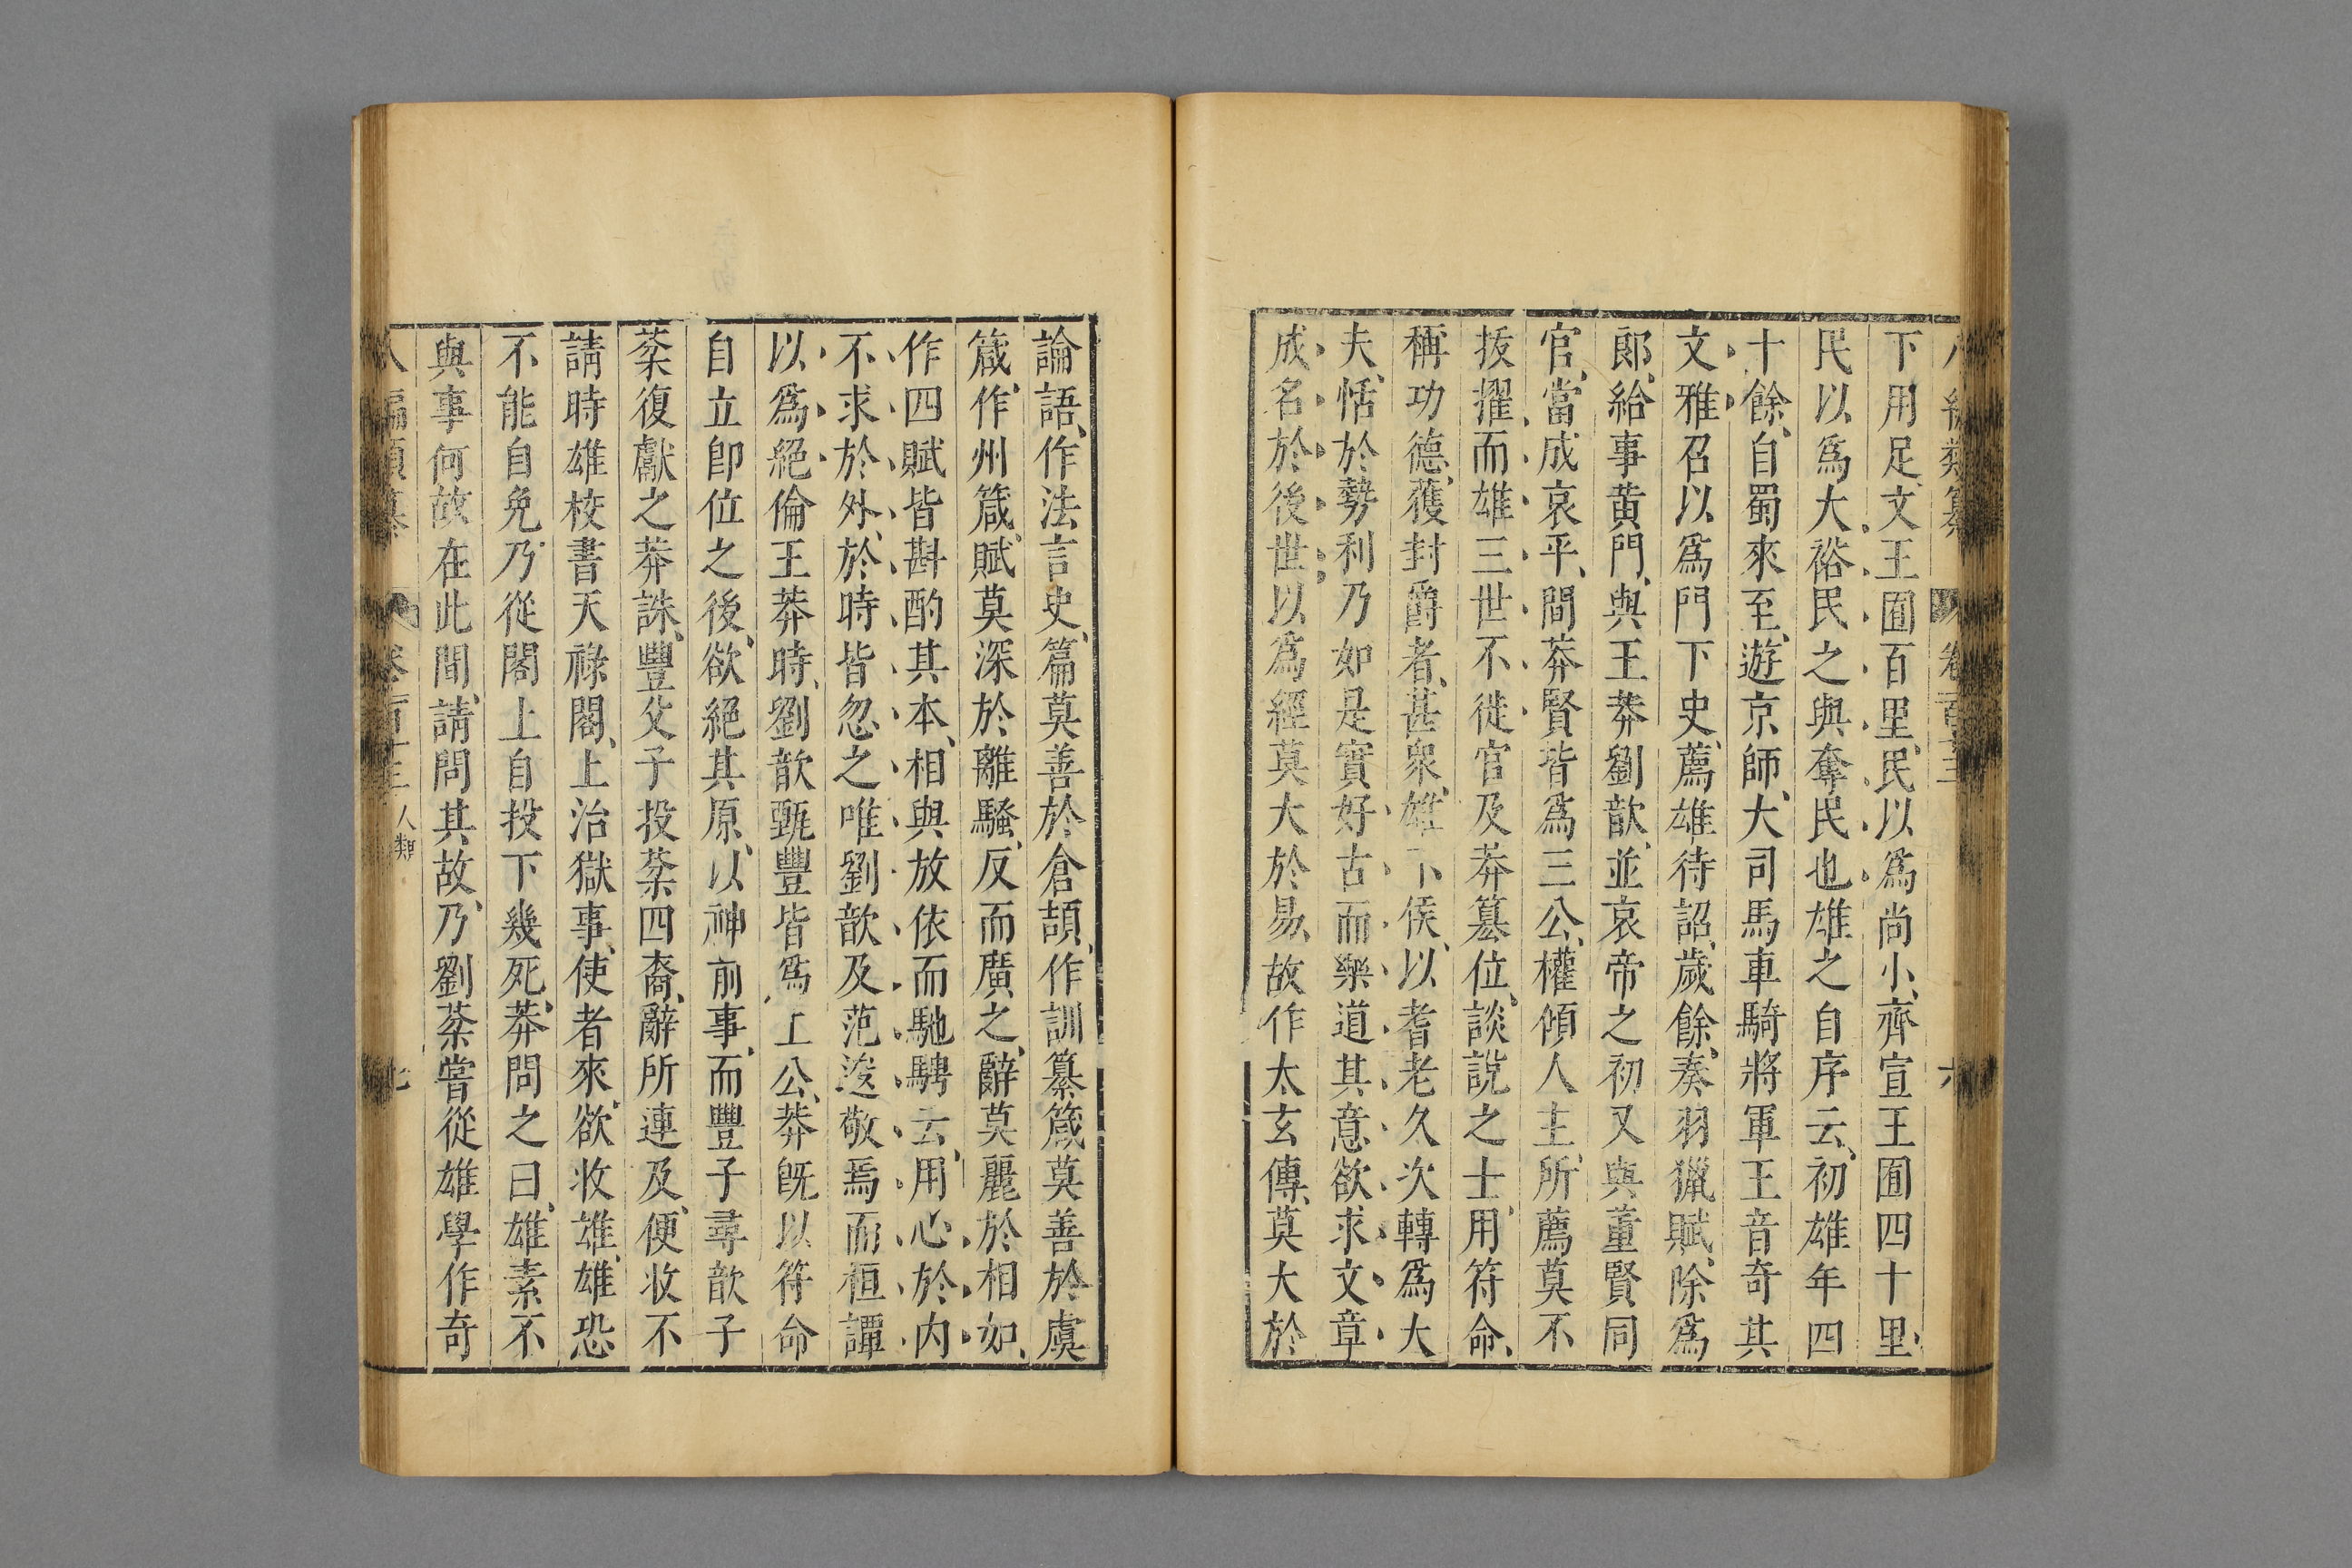 下用足文王囿百里民以爲尚小齊宣王囿四十里
民以爲大裕民之與奪民也雄之自序云初雄年四
十餘自蜀來至遊京師大司馬車騎將軍王音奇其
文雅召以爲門下史薦雄待詔歲餘奏羽獵賦除爲
郞給事黄門與王莽劉歆並哀帝之初又與董賢同
官當成哀平間莽賢皆爲三公權傾人主所薦莫不
拔擢而雄三世不徙官及莽篡位談說之士用符命
稱功德獲封爵者甚衆雄不侯以耆老久次轉爲大
夫恬於勢利乃如是實好古而樂道其意欲求文章
成名於後世以爲經莫大於易故作太玄傳莫大於
論語作法言史篇莫善於倉頡作訓纂箴莫善於虞
箴作州箴賦莫深於離騷反而廣之辭莫麗於相如
作四賦皆斟酌其本相與放依而馳騁云用心於内
不求於外於時皆忽之唯劉歆及范逡敬焉而桓譚
以爲絕倫王莽時劉歆甄豐皆爲上公莽旣以符命
自立卽位之後欲絕其原以神前事而豐子尋歆子
棻復獻之莽誅豐父子投棻四裔辭所連及便收不
請時雄校書天祿閣上治獄事使者來欲收雄雄恐
不能自免乃從閣上自投下幾死莽問之曰雄素不
與事何故在此間請問其故乃劉棻嘗從雄學作奇
人類